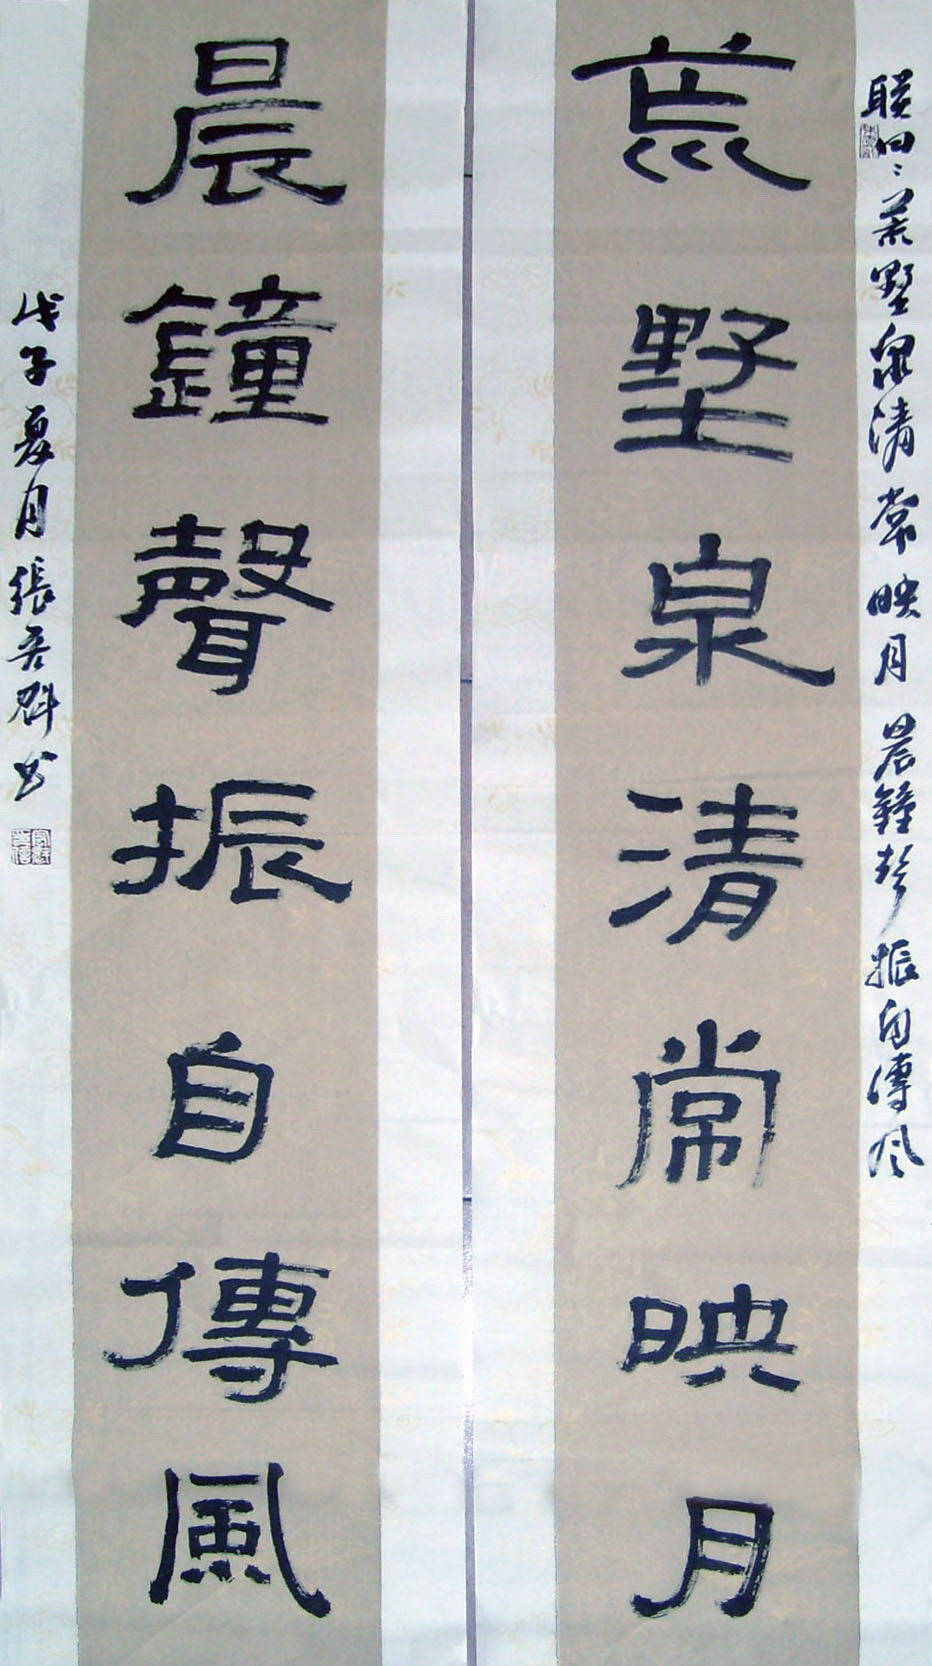 聯曰：荒墅泉清常映月 晨鐘聲振自傳风
荒墅泉清常映月
晨鐘聲振自傳風
戊子夏月張吾魁书